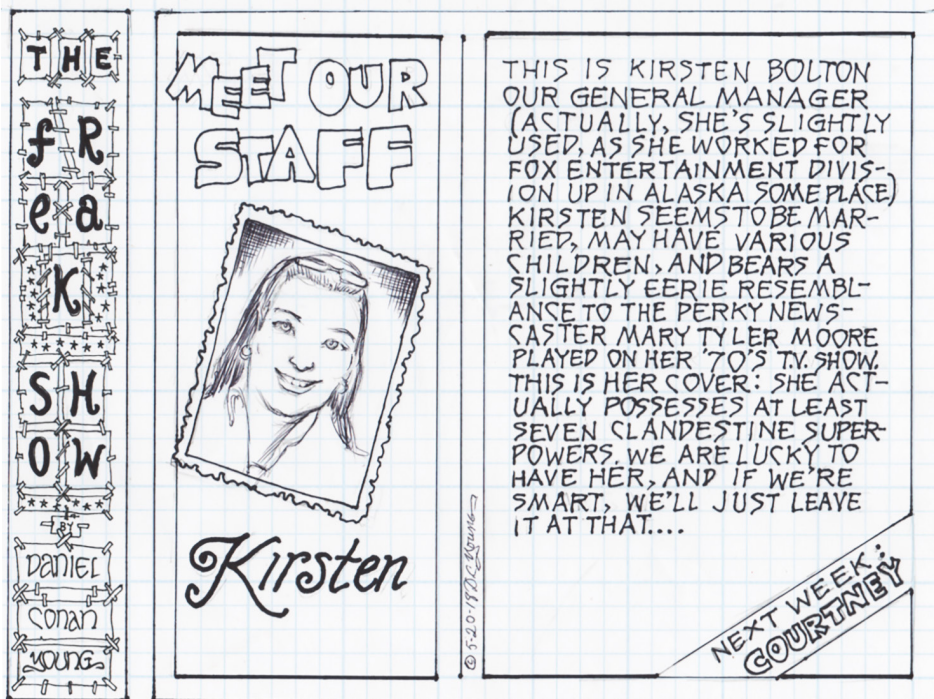 THE
fR
ea
K
SH
OW
BY
DANIEL
CONAN
YOUNG
MEET OUR
STAFF
Kirsten
© 5-20-19 D.C. Young
THIS IS KIRSTEN BOLTON
OUR GENERAL MANAGER
(ACTUALLY, SHE'S SLIGHTLY
USED, AS SHE WORKED FOR
FOX ENTERTAINMENT DIVIS-
ION UP IN ALASKA SOMEPLACE)
KIRSTEN SEEMS TO BE MAR-
RIED, MAY HAVE VARIOUS
CHILDREN, AND BEARS A
SLIGHTLY EERIE RESEMBL-
ANCE TO THE PERKY NEWS-
CASTER MARY TYLER MOORE
PLAYED ON HER '70'S T.V. SHOW.
THIS IS HER COVER: SHE ACT-
UALLY POSSESSES AT LEAST
SEVEN CLANDESTINE SUPER-
POWERS. WE ARE LUCKY TO
HAVE HER, AND IF WE'RE
SMART, WE'LL JUST LEAVE
IT AT THAT....
NEXT WEEK:
COURTNEY